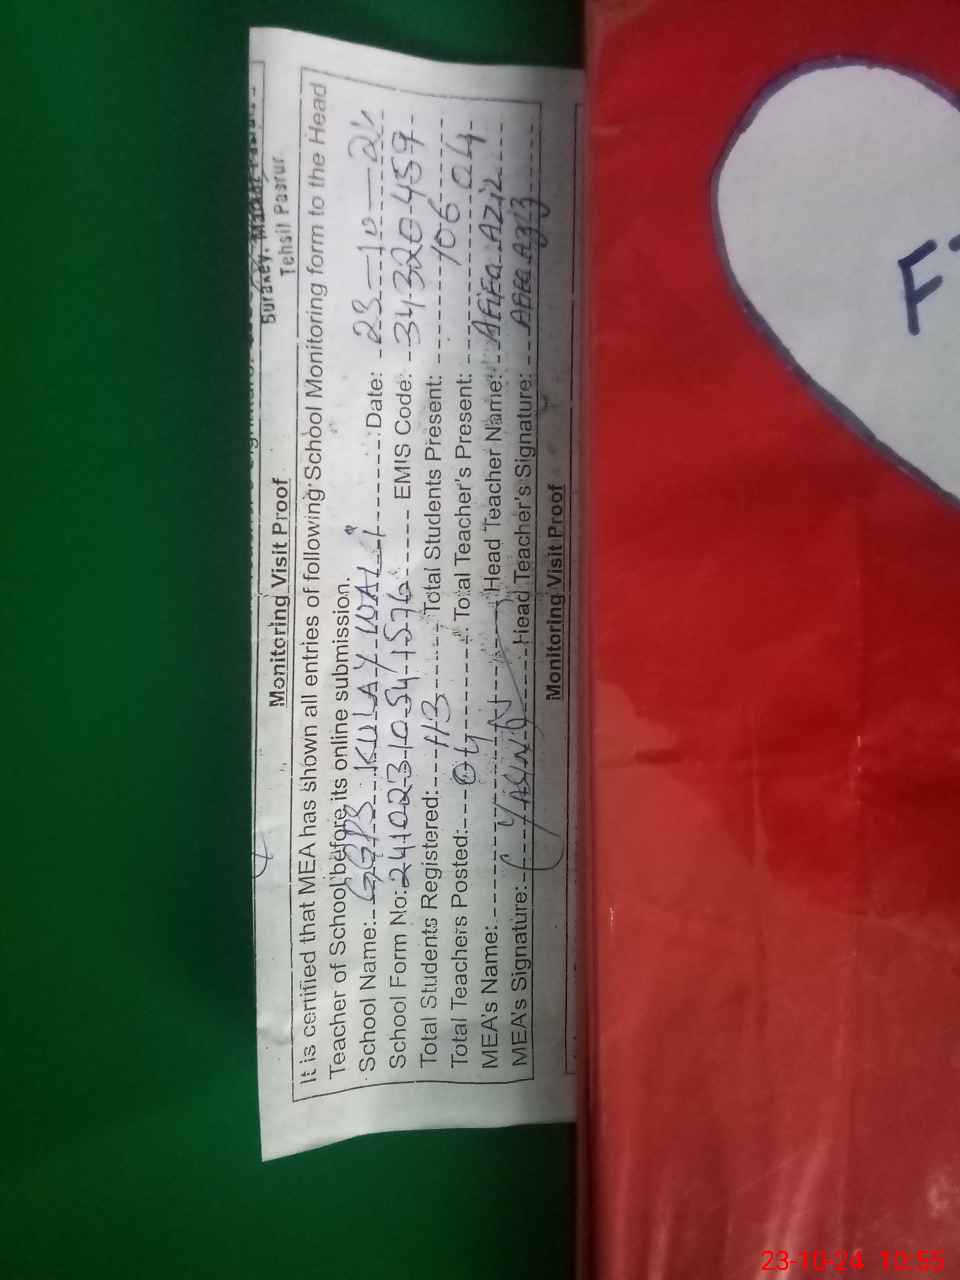 Tehsil Pasrur
Monitoring Visit Proof
It is certified that MEA has shown all entries of following School Monitoring form to the Head
Teacher of School before its online submission.
School Name: GGPS KULAY WALI Date: 23-10-24
School Form No: 24102310541576 EMIS Code: 34320459
Total Students Registered: 113 Total Students Present: 106
Total Teachers Posted: 04 Total Teacher's Present: 04
MEA's Name: YASIN Head Teacher Name: AFIFA AZIZ
MEA's Signature: Head Teacher's Signature: Afifa Aziz
Monitoring Visit Proof
F
23-10-24 10:55